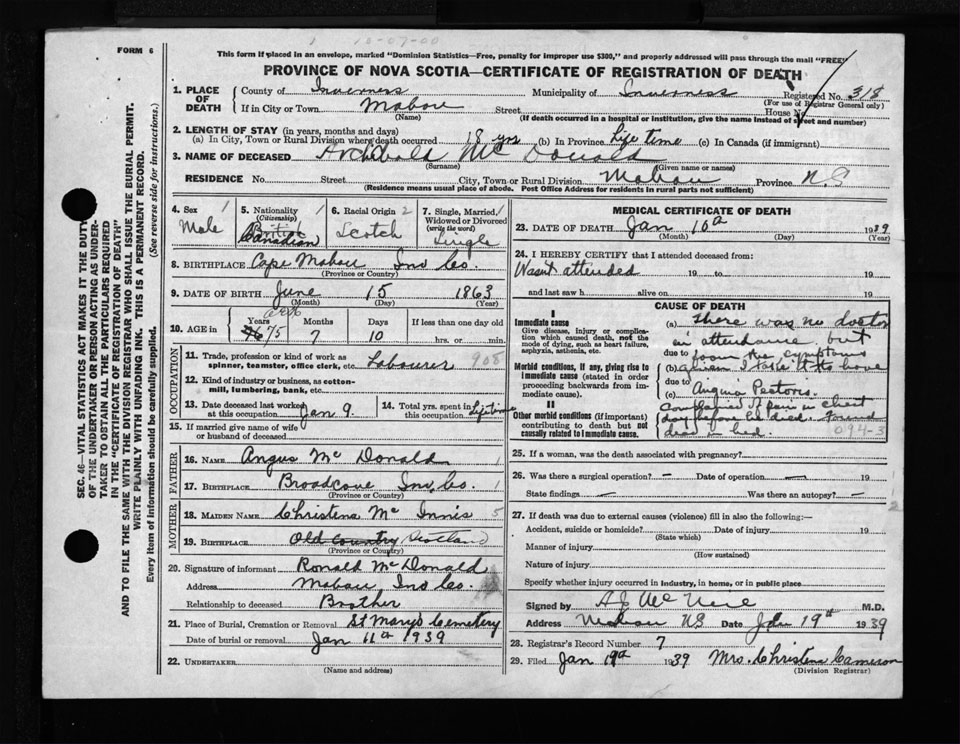 FORM 6
This form if placed in an envelope, marked "Dominion Statistics—Free, penalty for improper use $300," and properly addressed will pass through the mail "FREE"
PROVINCE OF NOVA SCOTIA—CERTIFICATE OF REGISTRATION OF DEATH
1. PLACE OF DEATH
County of Inverness Municipality of Inverness Registered No. 318
(For use of Registrar General only)
If in City or Town Mabou Street House No.
(Name) (If death occurred in a hospital or institution, give the name instead of street and number)
2. LENGTH OF STAY (in years, months and days)
(a) In City, Town or Rural Division where death occurred 18 yrs (b) In Province Life time (c) In Canada (if immigrant)
3. NAME OF DECEASED Archibald Mc Donald
(Surname) (Given name or names)
RESIDENCE No. Street City, Town or Rural Division Mabou Province N.S
(Residence means usual place of abode. Post Office Address for residents in rural parts not sufficient)
4. Sex Male
5. Nationality (Citizenship) British Canadian
6. Racial Origin Scotch
7. Single, Married, Widowed or Divorced (write the word) Single
8. BIRTHPLACE Cape Mabou Inv Co.
(Province or Country)
9. DATE OF BIRTH June 15 1863
(Month) (Day) (Year)
10. AGE in Years 75 Months 7 Days 10 If less than one day old
hrs. or min.
OCCUPATION
11. Trade, profession or kind of work as spinner, teamster, office clerk, etc. Labourer 908
12. Kind of industry or business, as cotton-mill, lumbering, bank, etc.
13. Date deceased last worked at this occupation Jan 9.
14. Total yrs. spent in this occupation Lifetime
15. If married give name of wife or husband of deceased
FATHER
16. NAME Angus Mc Donald
17. BIRTHPLACE Broadcove Inv. Co.
(Province or Country)
MOTHER
18. MAIDEN NAME Christena Mc Innis 5
19. BIRTHPLACE Old Country Scotland
(Province or Country)
20. Signature of informant Ronald McDonald
Address Mabou Inv Co.
Relationship to deceased Brother
21. Place of Burial, Cremation or Removal St Marys Cemetery
Date of burial or removal Jan 11th 1939
22. UNDERTAKER
(Name and Address)
MEDICAL CERTIFICATE OF DEATH
23. DATE OF DEATH Jan 10th 1939
(Month) (Day) (Year)
24. I HEREBY CERTIFY that I attended deceased from:
Wasn't attended 19 to 19
and last saw h alive on 19
CAUSE OF DEATH
I
Immediate cause
Give disease, injury or complication which caused death, not the mode of dying, such as heart failure, asphyxia, asthenia, etc.
Morbid conditions, if any, giving rise to immediate cause (stated in order proceeding backwards from immediate cause).
II
Other morbid conditions (if important) contributing to death but not causally related to immediate cause.
(a) There was no doctor
in attendance but
due to from the symptoms
(b) given I take it to have
due to
(c) Angina Pectoris.
Complained of pain in chest
day before he died. Found
dead in bed 094-3
25. If a woman, was the death associated with pregnancy?
26. Was there a surgical operation? — Date of operation — 19
State findings — Was there an autopsy? —
27. If death was due to external causes (violence) fill in also the following:—
Accident, suicide or homicide? Date of injury 19
(State which)
Manner of injury
(How sustained)
Nature of injury
Specify whether injury occurred in industry, in home, or in public place
Signed by A J Mc Neil M.D.
Address Mabou NS Date Jan 19th 1939
28. Registrar's Record Number 7
29. Filed Jan 19th 1939 Mrs. Christena Cameron
(Division Registrar)
SEC. 46—VITAL STATISTICS ACT MAKES IT THE DUTY
OF THE UNDERTAKER OR PERSON ACTING AS UNDER-
TAKER TO OBTAIN ALL THE PARTICULARS REQUIRED
IN THE "CERTIFICATE OF REGISTRATION OF DEATH"
AND TO FILE THE SAME WITH THE DIVISION REGISTRAR WHO SHALL ISSUE THE BURIAL PERMIT.
WRITE PLAINLY WITH UNFADING INK. THIS IS A PERMANENT RECORD.
Every item of information should be carefully supplied. (See reverse side for instructions.)